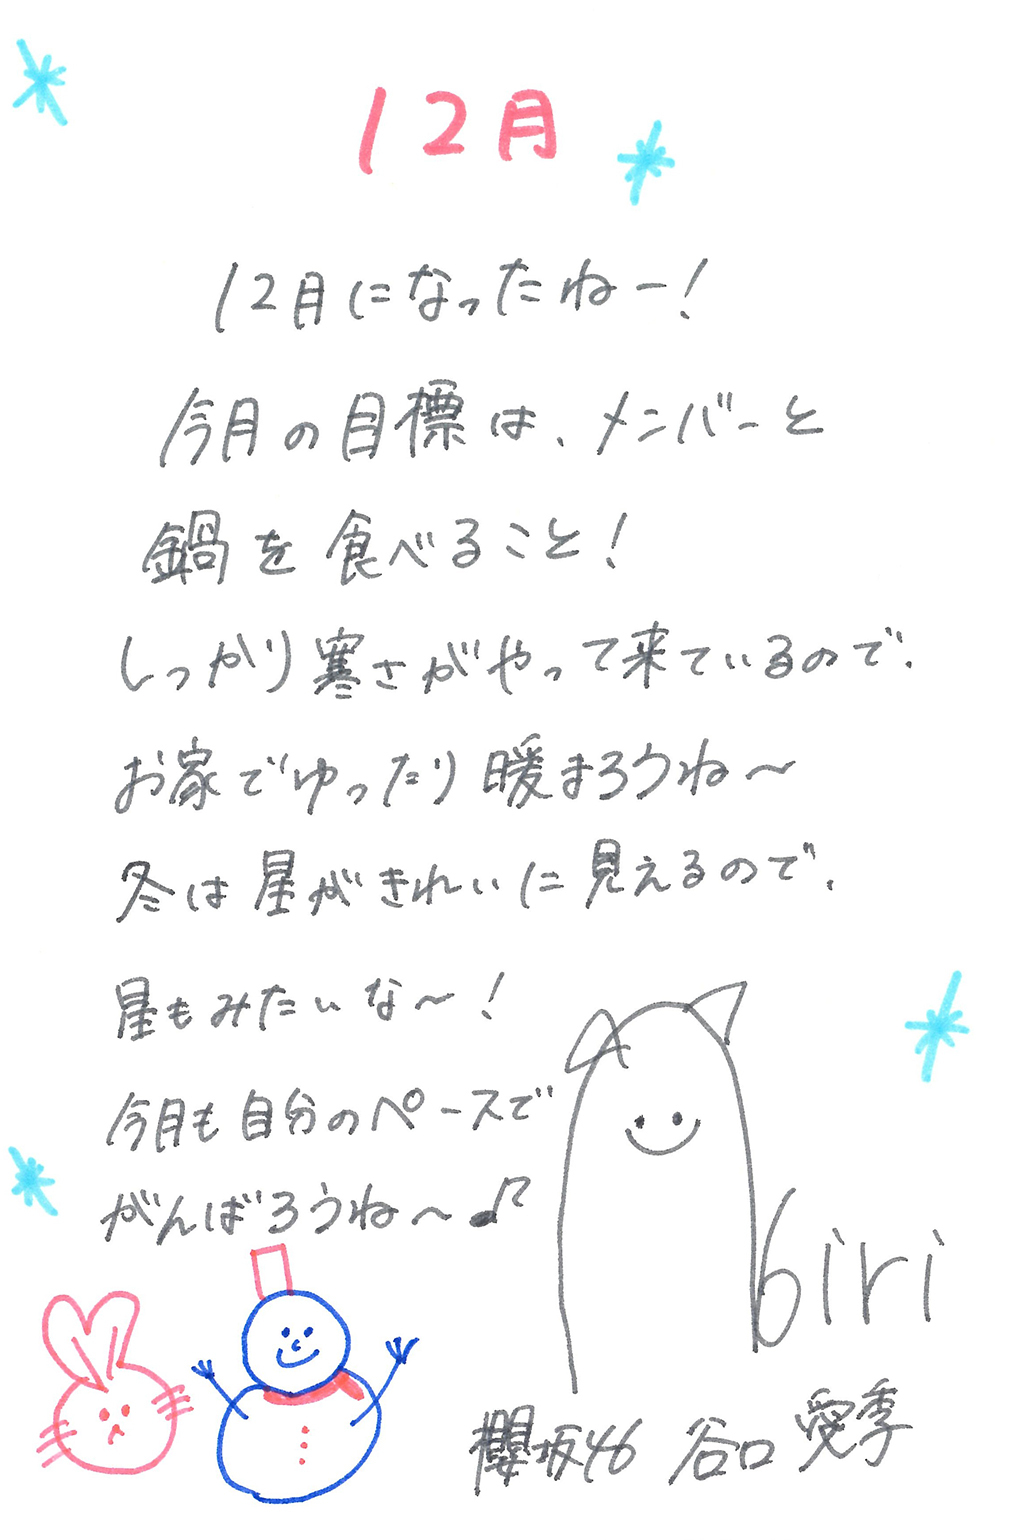 12月
12月になったねー!
今月の目標は、メンバーと
鍋を食べること!
しっかり寒さがやって来ているので、
お家でゆったり暖まろうね〜
冬は星がきれいに見えるので、
星もみたいな〜!
今月も自分のペースで
がんばろうね〜♪
biri
櫻坂46 谷口 愛季